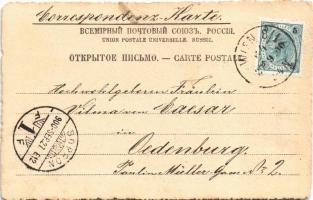 Correspondenz-Karte.
ВСЕМІРНЫЙ ПОЧТОВЫЙ СОЮЗЪ. РОССІЯ.
UNION POSTALE UNIVERSELLE. RUSSIE.
ОТКРЫТОЕ ПИСЬМО. — CARTE POSTALE
Hochwohlgeboren Fräulein
Vilma von Caesar
in
Oedenburg.
Pauline Müller Gasse № 2
SOPRON